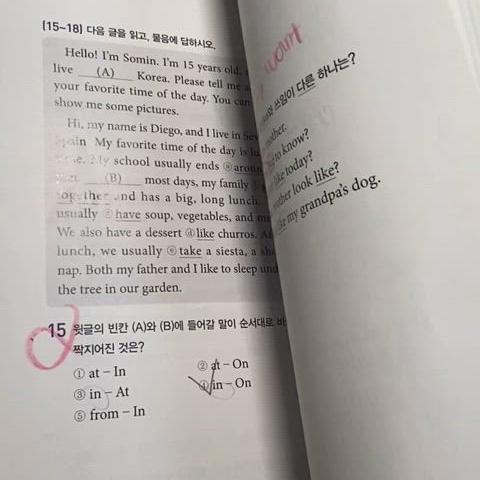 [15~18] 다음 글을 읽고, 물음에 답하시오.
Hello! I'm Somin. I'm 15 years old,
live (A) Korea. Please tell me
your favorite time of the day. You can
show me some pictures.
Hi, my name is Diego, and I live in
My favorite time of the day is
My school usually ends ⓐ
(B) most days, my family
together and has a big, long lunch.
usually ⓒ have soup, vegetables, and
We also have a dessert ⓓ like churros.
lunch, we usually ⓔ take a siesta, a
nap. Both my father and I like to sleep
the tree in our garden.
15 윗글의 빈칸 (A)와 (B)에 들어갈 말이 순서대로
짝지어진 것은?
① at – In
② at – On
③ in – At
④ in – On
⑤ from – In
쓰임이 다른 하나는?
to know?
like today?
look like?
my grandpa's dog.